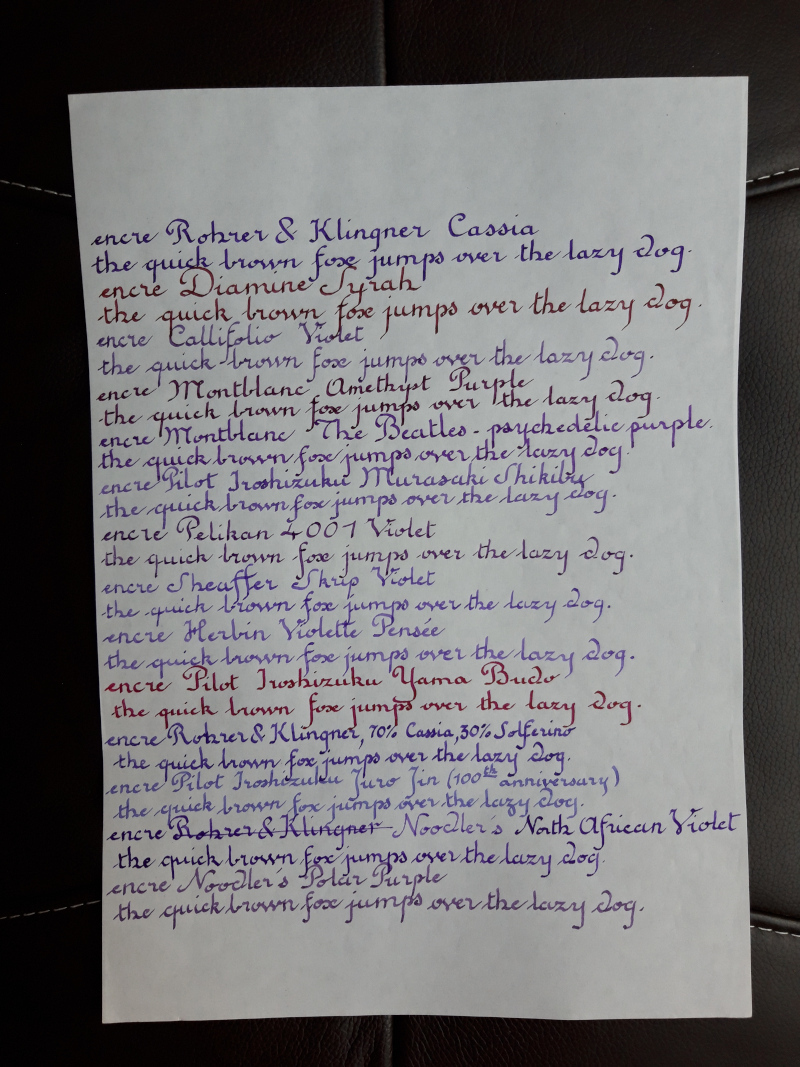 encre Rohrer & Klingner Cassia
the quick brown fox jumps over the lazy dog.
encre Diamine Syrah
the quick brown fox jumps over the lazy dog.
encre Callifolio Violet
the quick brown fox jumps over the lazy dog.
encre Montblanc Amethyst Purple
the quick brown fox jumps over the lazy dog.
encre Montblanc The Beatles - psychedelic purple.
the quick brown fox jumps over the lazy dog.
encre Pilot Iroshizuku Murasaki Shikibu
the quick brown fox jumps over the lazy dog.
encre Pelikan 4001 Violet
the quick brown fox jumps over the lazy dog.
encre Sheaffer Skrip Violet
the quick brown fox jumps over the lazy dog.
encre Herbin Violette Pensée
the quick brown fox jumps over the lazy dog.
encre Pilot Iroshizuku Yama Budo
the quick brown fox jumps over the lazy dog.
encre Rohrer & Klingner, 70% Cassia, 30% Solferino
the quick brown fox jumps over the lazy dog.
encre Pilot Iroshizuku Juro Jin (100th anniversary)
the quick brown fox jumps over the lazy dog.
encre Rohrer & Klingner Noodler's North African Violet
the quick brown fox jumps over the lazy dog.
encre Noodler's Polar Purple
the quick brown fox jumps over the lazy dog.